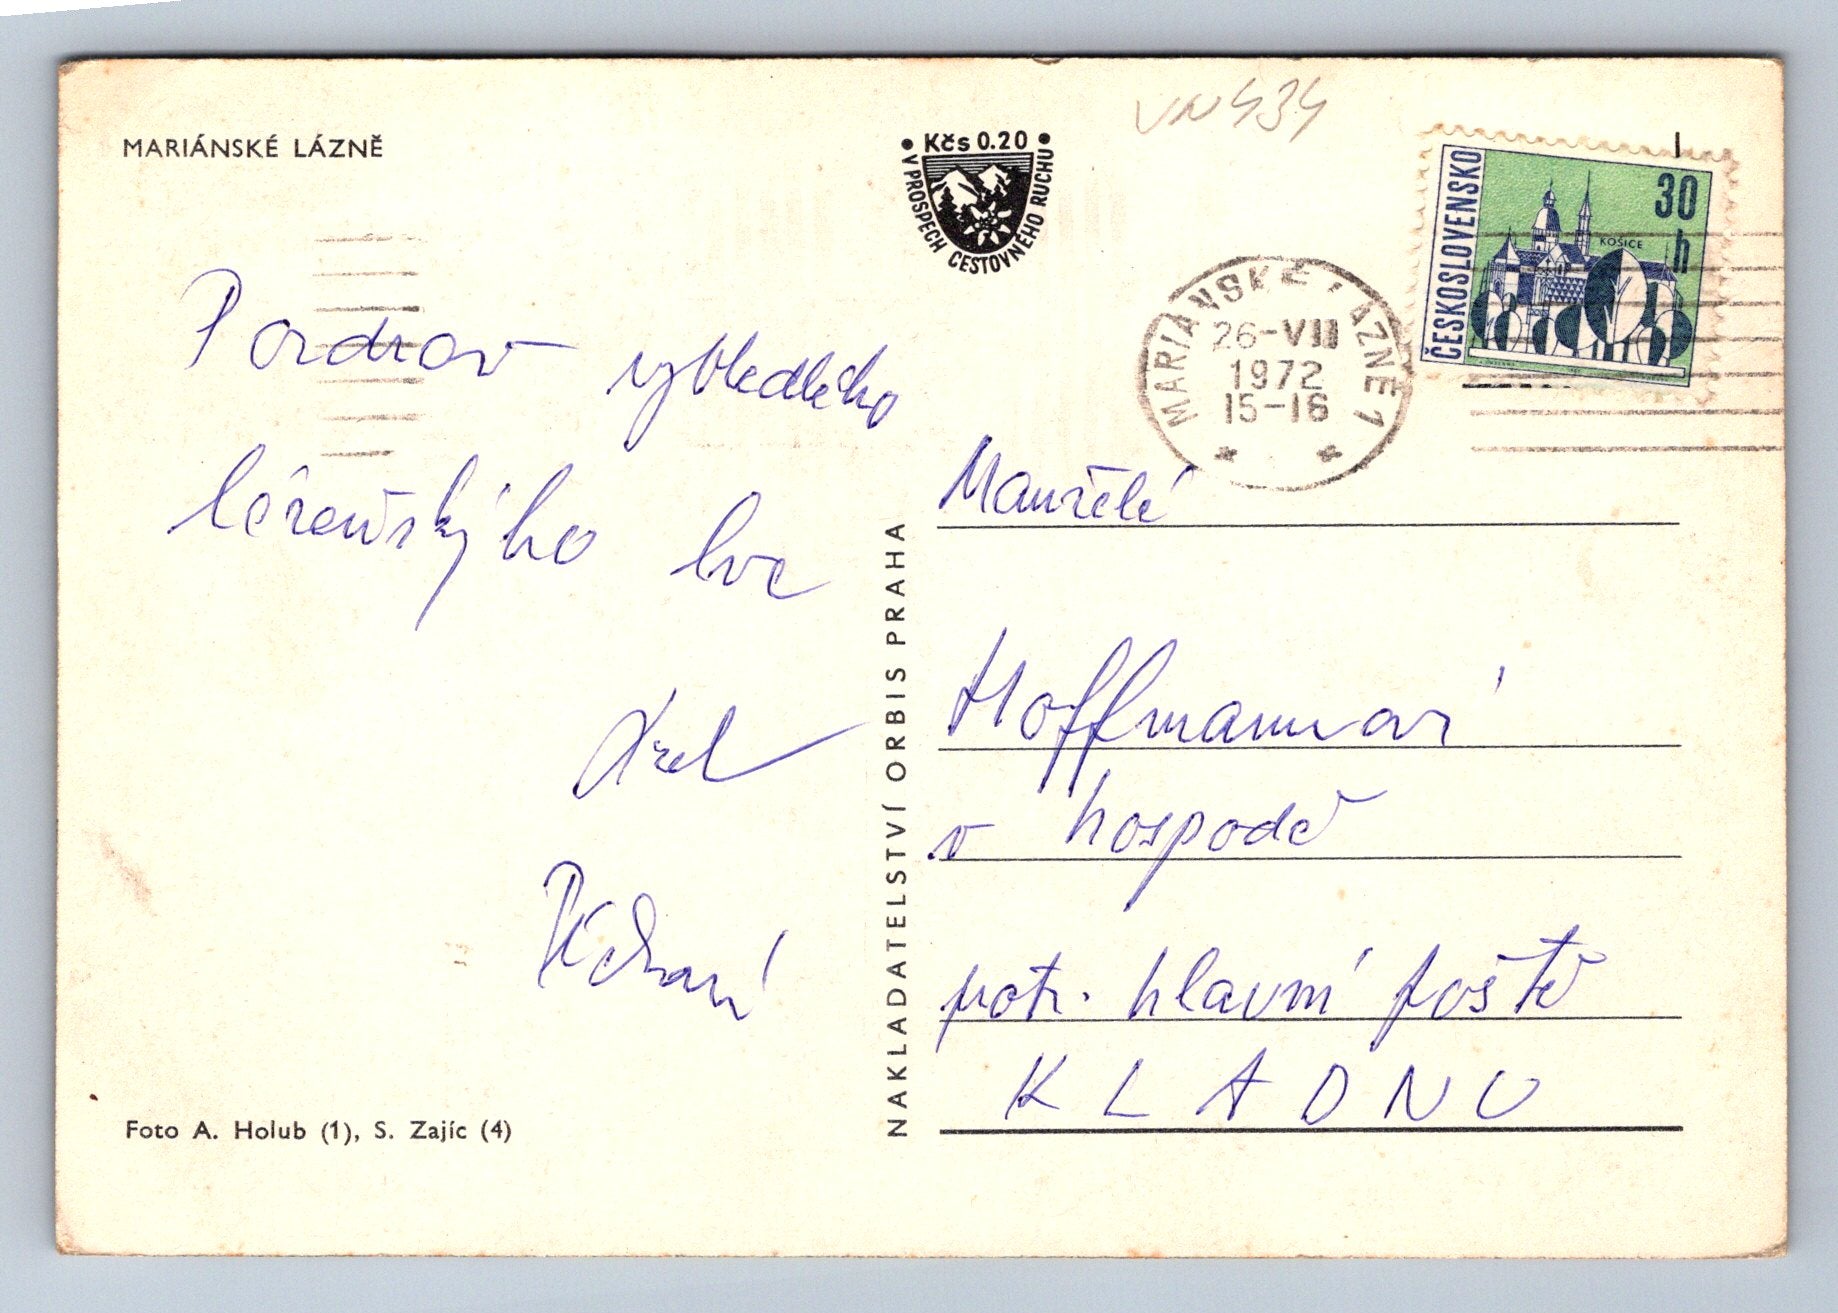 MARIÁNSKÉ LÁZNĚ
Kčs 0.20
V PROSPĚCH CESTOVNÉHO RUCHU
VN434
ČESKOSLOVENSKO
30
h
KOŠICE
MARIÁNSKÉ LÁZNĚ 1
26-VII
1972
15-16
Pozdrav vyhledlého
lázeňskýho lva
NAKLADATELSTVÍ ORBIS PRAHA
Manželé
Hoffmannovi
v hospodě
naproti hlavní poště
KLADNO
Foto A. Holub (1), S. Zajíc (4)